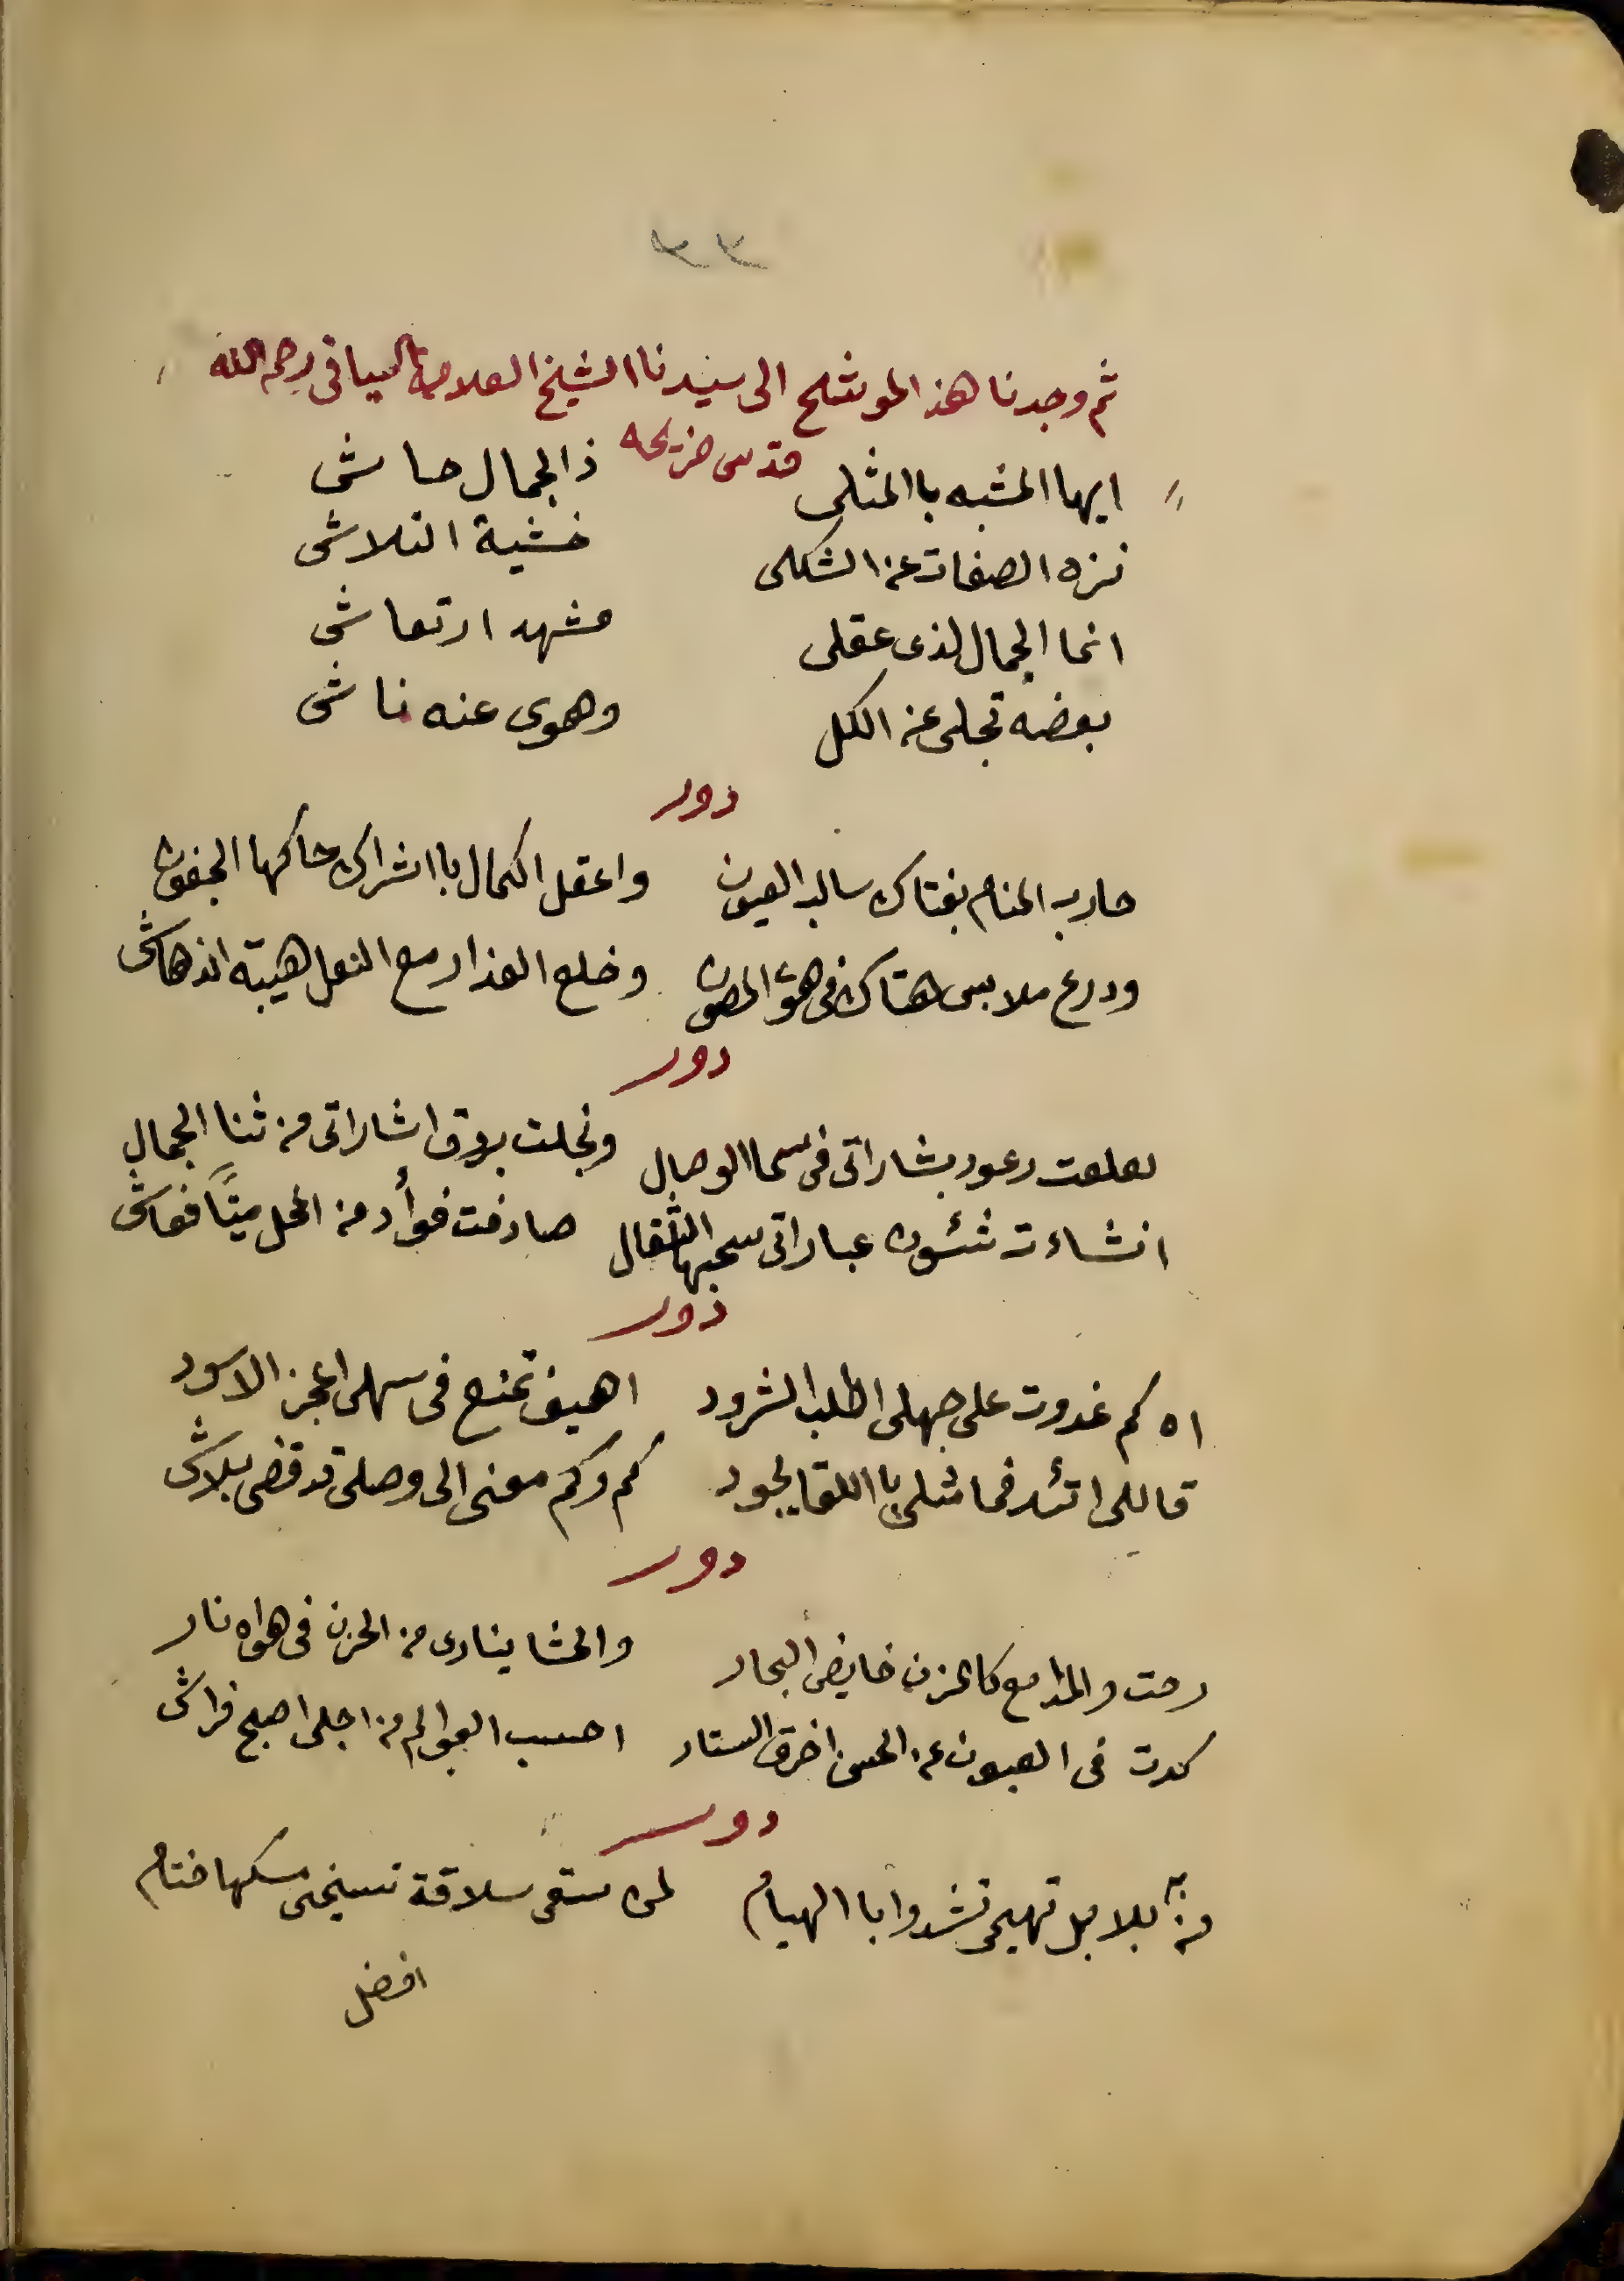 ٣٣
ثم وجدنا هذا الموشح الى سيدنا الشيخ العلامة اليافى رحمه الله
قدس ضريحه
ايها المشبه باالمثلى ذالجمال حاشى
نزه الصفات عن الشكلى خشية التلاشى
انما الجمال لذى عقلى مشهد ارتعاشى
بعضه تجلى عن الكل وهوى عنه ناشى
دور
حارب المنام بفتاك سالب العيون واعقل الكمال بااشراك حاكها الجفون
ودرع ملابس هتاك فى هوى المصون وخلع العذار مع النعل هيبة اندهاشى
دور
لعلعت رعود بشاراتى فى سما الوصال ونجلت بروق اشاراتى من ثنا الجمال
انشاءت شئون عباراتى سحبها الثقال صادفت فوأد من المحل ميتًا فعاشى
دور
اه كم غدوت على جهلى اطلب الشرود اهيف تمنع فى سهلى اعجز الاسود
قاللى اتئد فما مثلى باللقا يجود كم وكم معنى الى وصلى قد قضى بلاشى
دور
رحت والمدامع كالمزن خايض البحار والحشا ينادى من الحزن فى هواه نار
كدت فى العيون عن الحسن اخرق الستار احسب العوالم من اجلى اصبح فراشى
دور
من بلابل تهيمى تشدوا باالهيام لمن سقى سلافة تسنيمى مسكها ختام
افضل